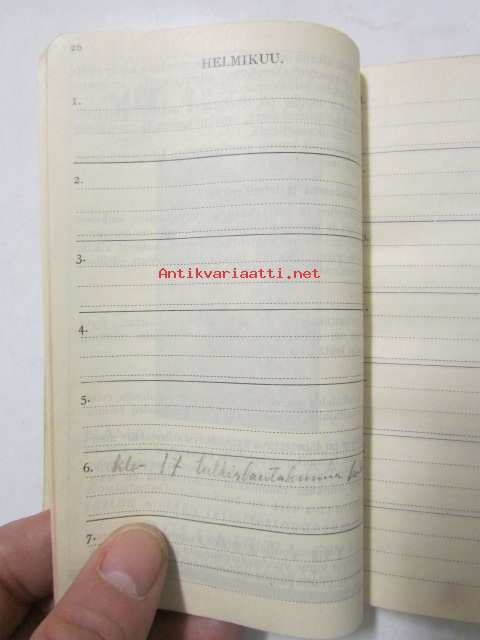 26
HELMIKUU.
1.
2.
3.
Antikvariaatti.net
4.
5.
6. klo 17
7.